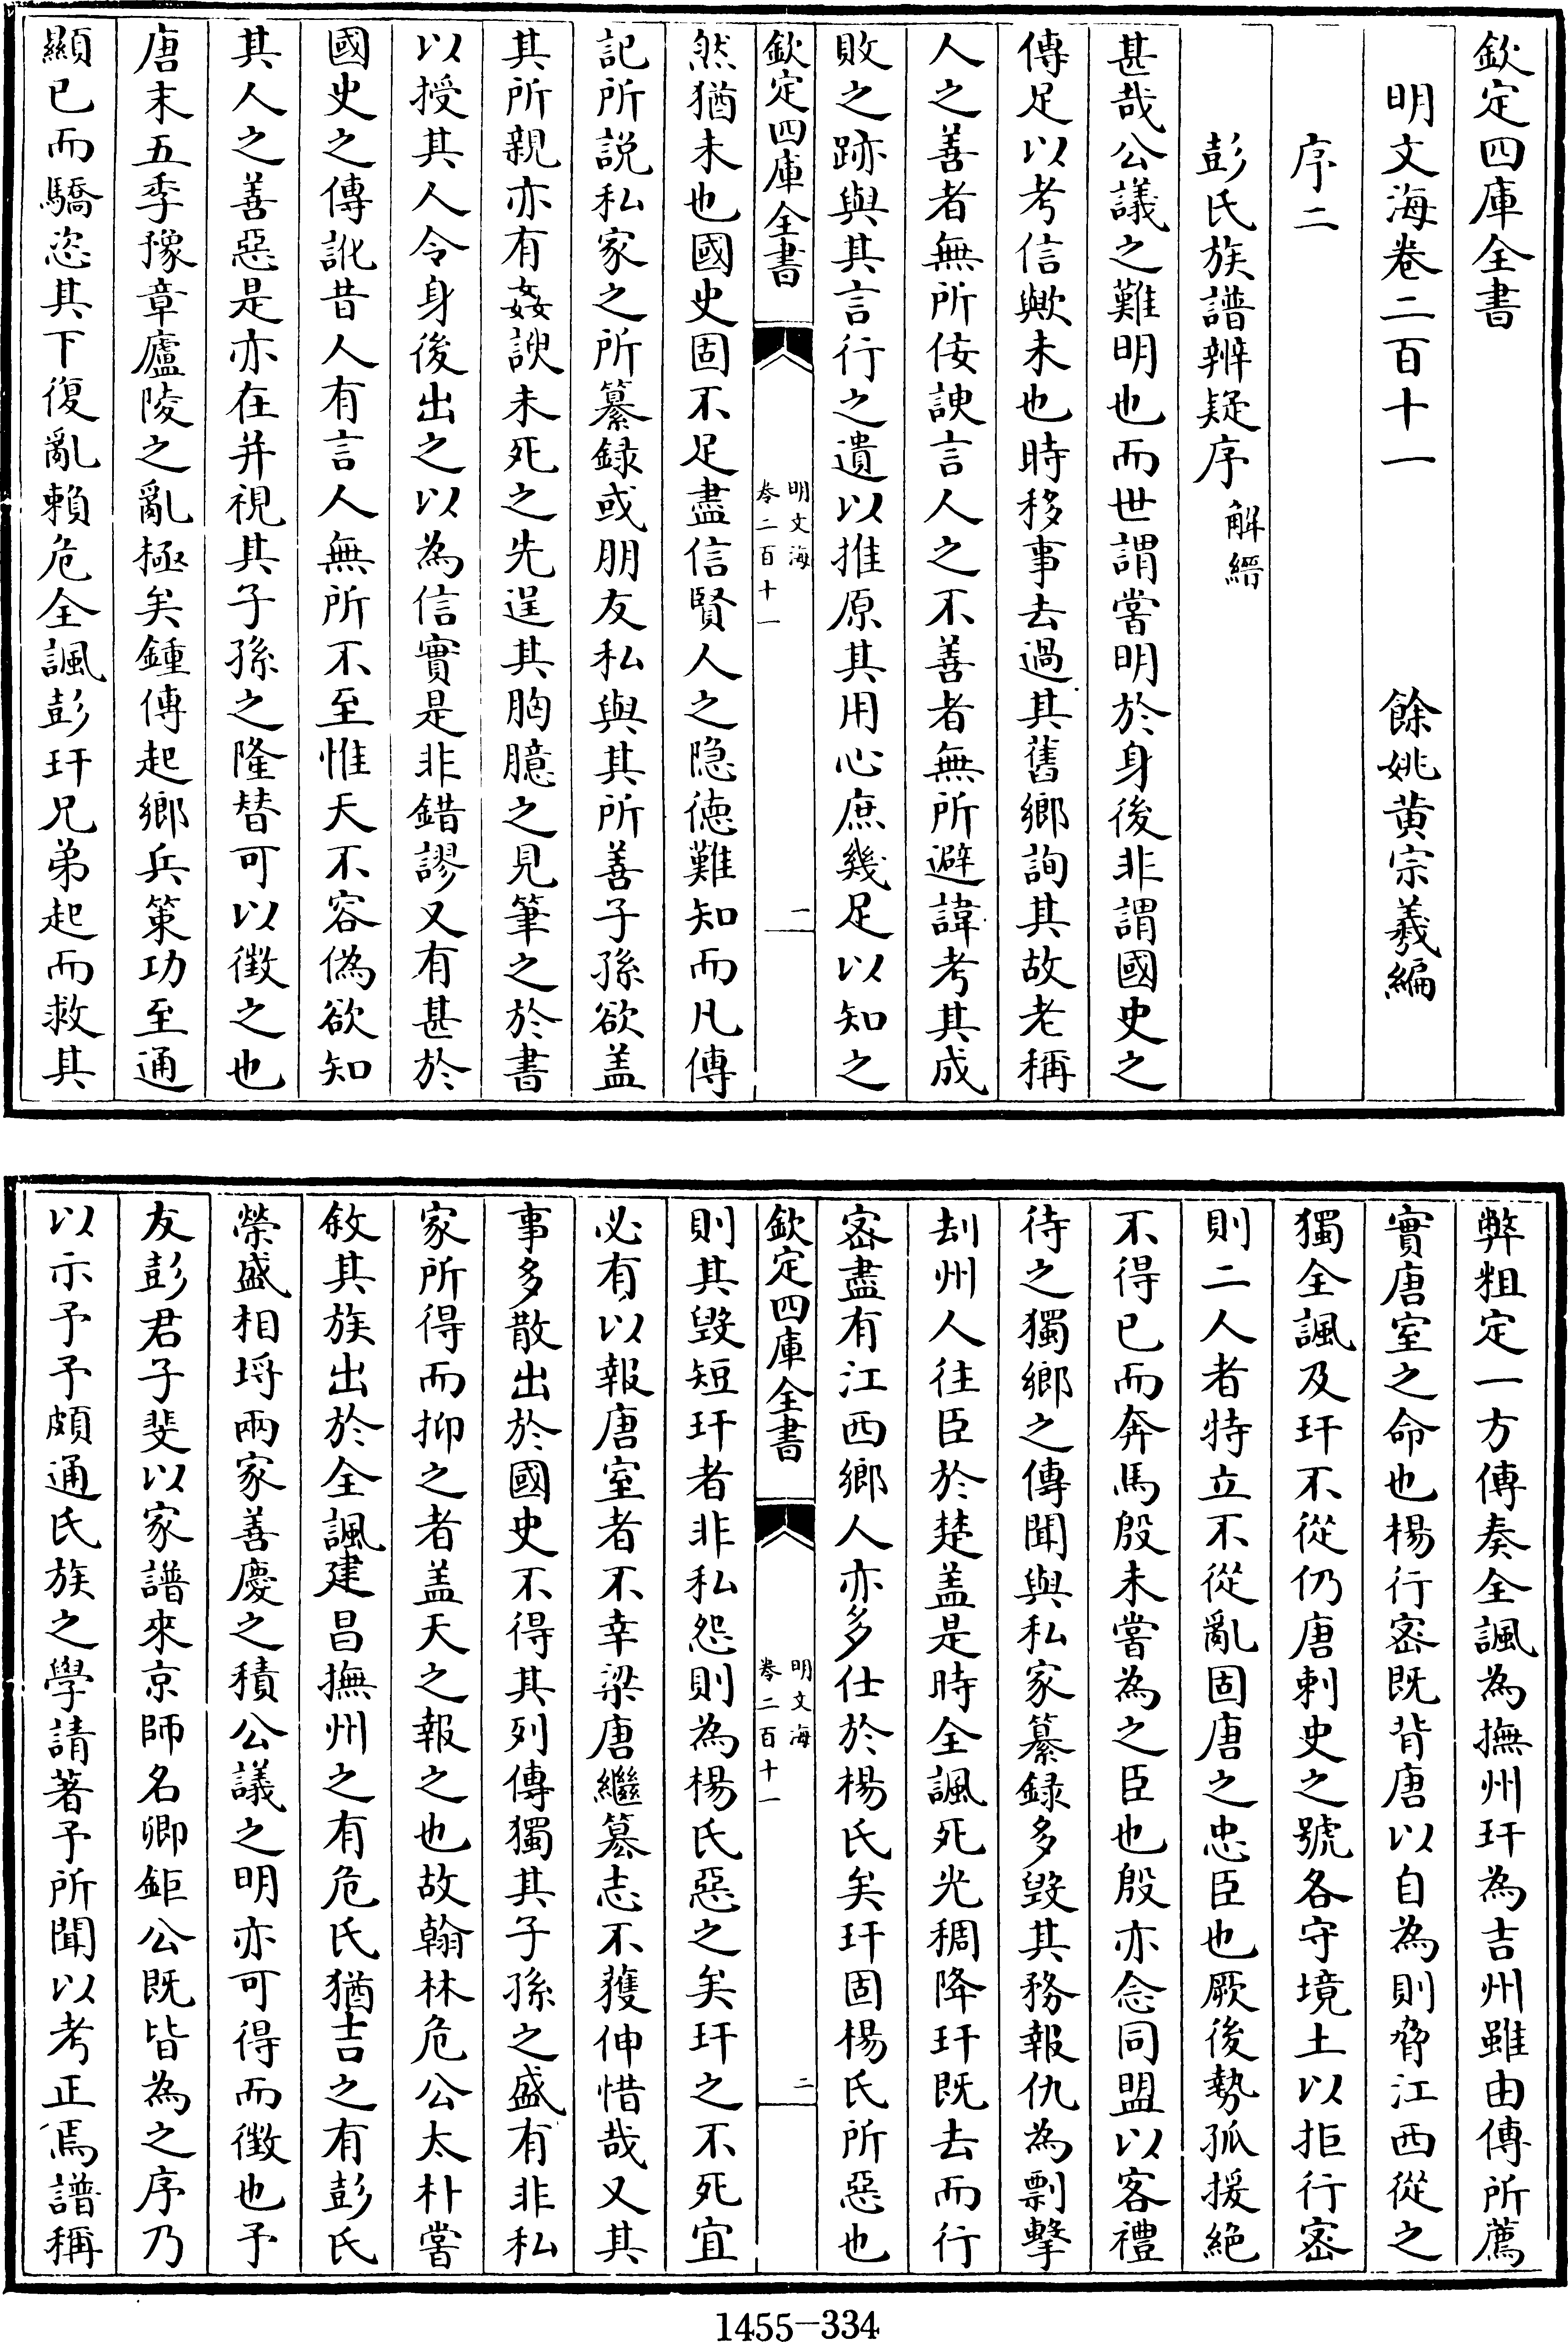 欽定四庫全書
明文海卷二百十一　餘姚黄宗羲編
序二
彭氏族譜辨疑序　解縉
甚哉公議之難明也而世謂嘗明於身後非謂國史之
傳足以考信歟未也時移事去過其舊鄉詢其故老稱
人之善者無所佞諛言人之不善者無所避諱考其成
敗之跡與其言行之遺以推原其用心庶幾足以知之
欽定四庫全書
明文海
卷二百十一
一
然猶未也國史固不足盡信賢人之隐德難知而凡傳
記所説私家之所纂録或朋友私與其所善子孫欲盖
其所親亦有姦諛未死之先逞其胸臆之見筆之於書
以授其人令身後出之以為信實是非錯謬又有甚於
國史之傳訛昔人有言人無所不至惟天不容偽欲知
其人之善惡是亦在并視其子孫之隆替可以徴之也
唐末五季豫章廬陵之亂極矣鍾傳起鄉兵策功至通
顯已而驕恣其下復亂賴危全諷彭玕兄弟起而救其
弊粗定一方傳奏全諷為撫州玕為吉州雖由傳所薦
實唐室之命也楊行宻既背唐以自為則脅江西從之
獨全諷及玕不從仍唐刺史之號各守境土以拒行宻
則二人者特立不從亂固唐之忠臣也厥後勢孤援絶
不得已而奔馬殷未嘗為之臣也殷亦念同盟以客禮
待之獨鄉之傳聞與私家纂録多毀其務報仇為剽擊
刦州人往臣於楚盖是時全諷死光稠降玕既去而行
宻盡有江西鄉人亦多仕於楊氏矣玕固楊氏所惡也
欽定四庫全書
明文海
卷二百十一
二
則其毀短玕者非私怨則為楊氏惡之矣玕之不死宜
必有以報唐室者不幸梁唐繼簒志不獲伸惜哉又其
事多散出於國史不得其列傳獨其子孫之盛有非私
家所得而抑之者盖天之報之也故翰林危公太朴嘗
敘其族出於全諷建昌撫州之有危氏猶吉之有彭氏
榮盛相埒兩家善慶之積公議之明亦可得而徴也予
友彭君子斐以家譜來京師名卿鉅公既皆為之序乃
以示予予頗通氏族之學請著予所聞以考正焉譜稱
1455-334